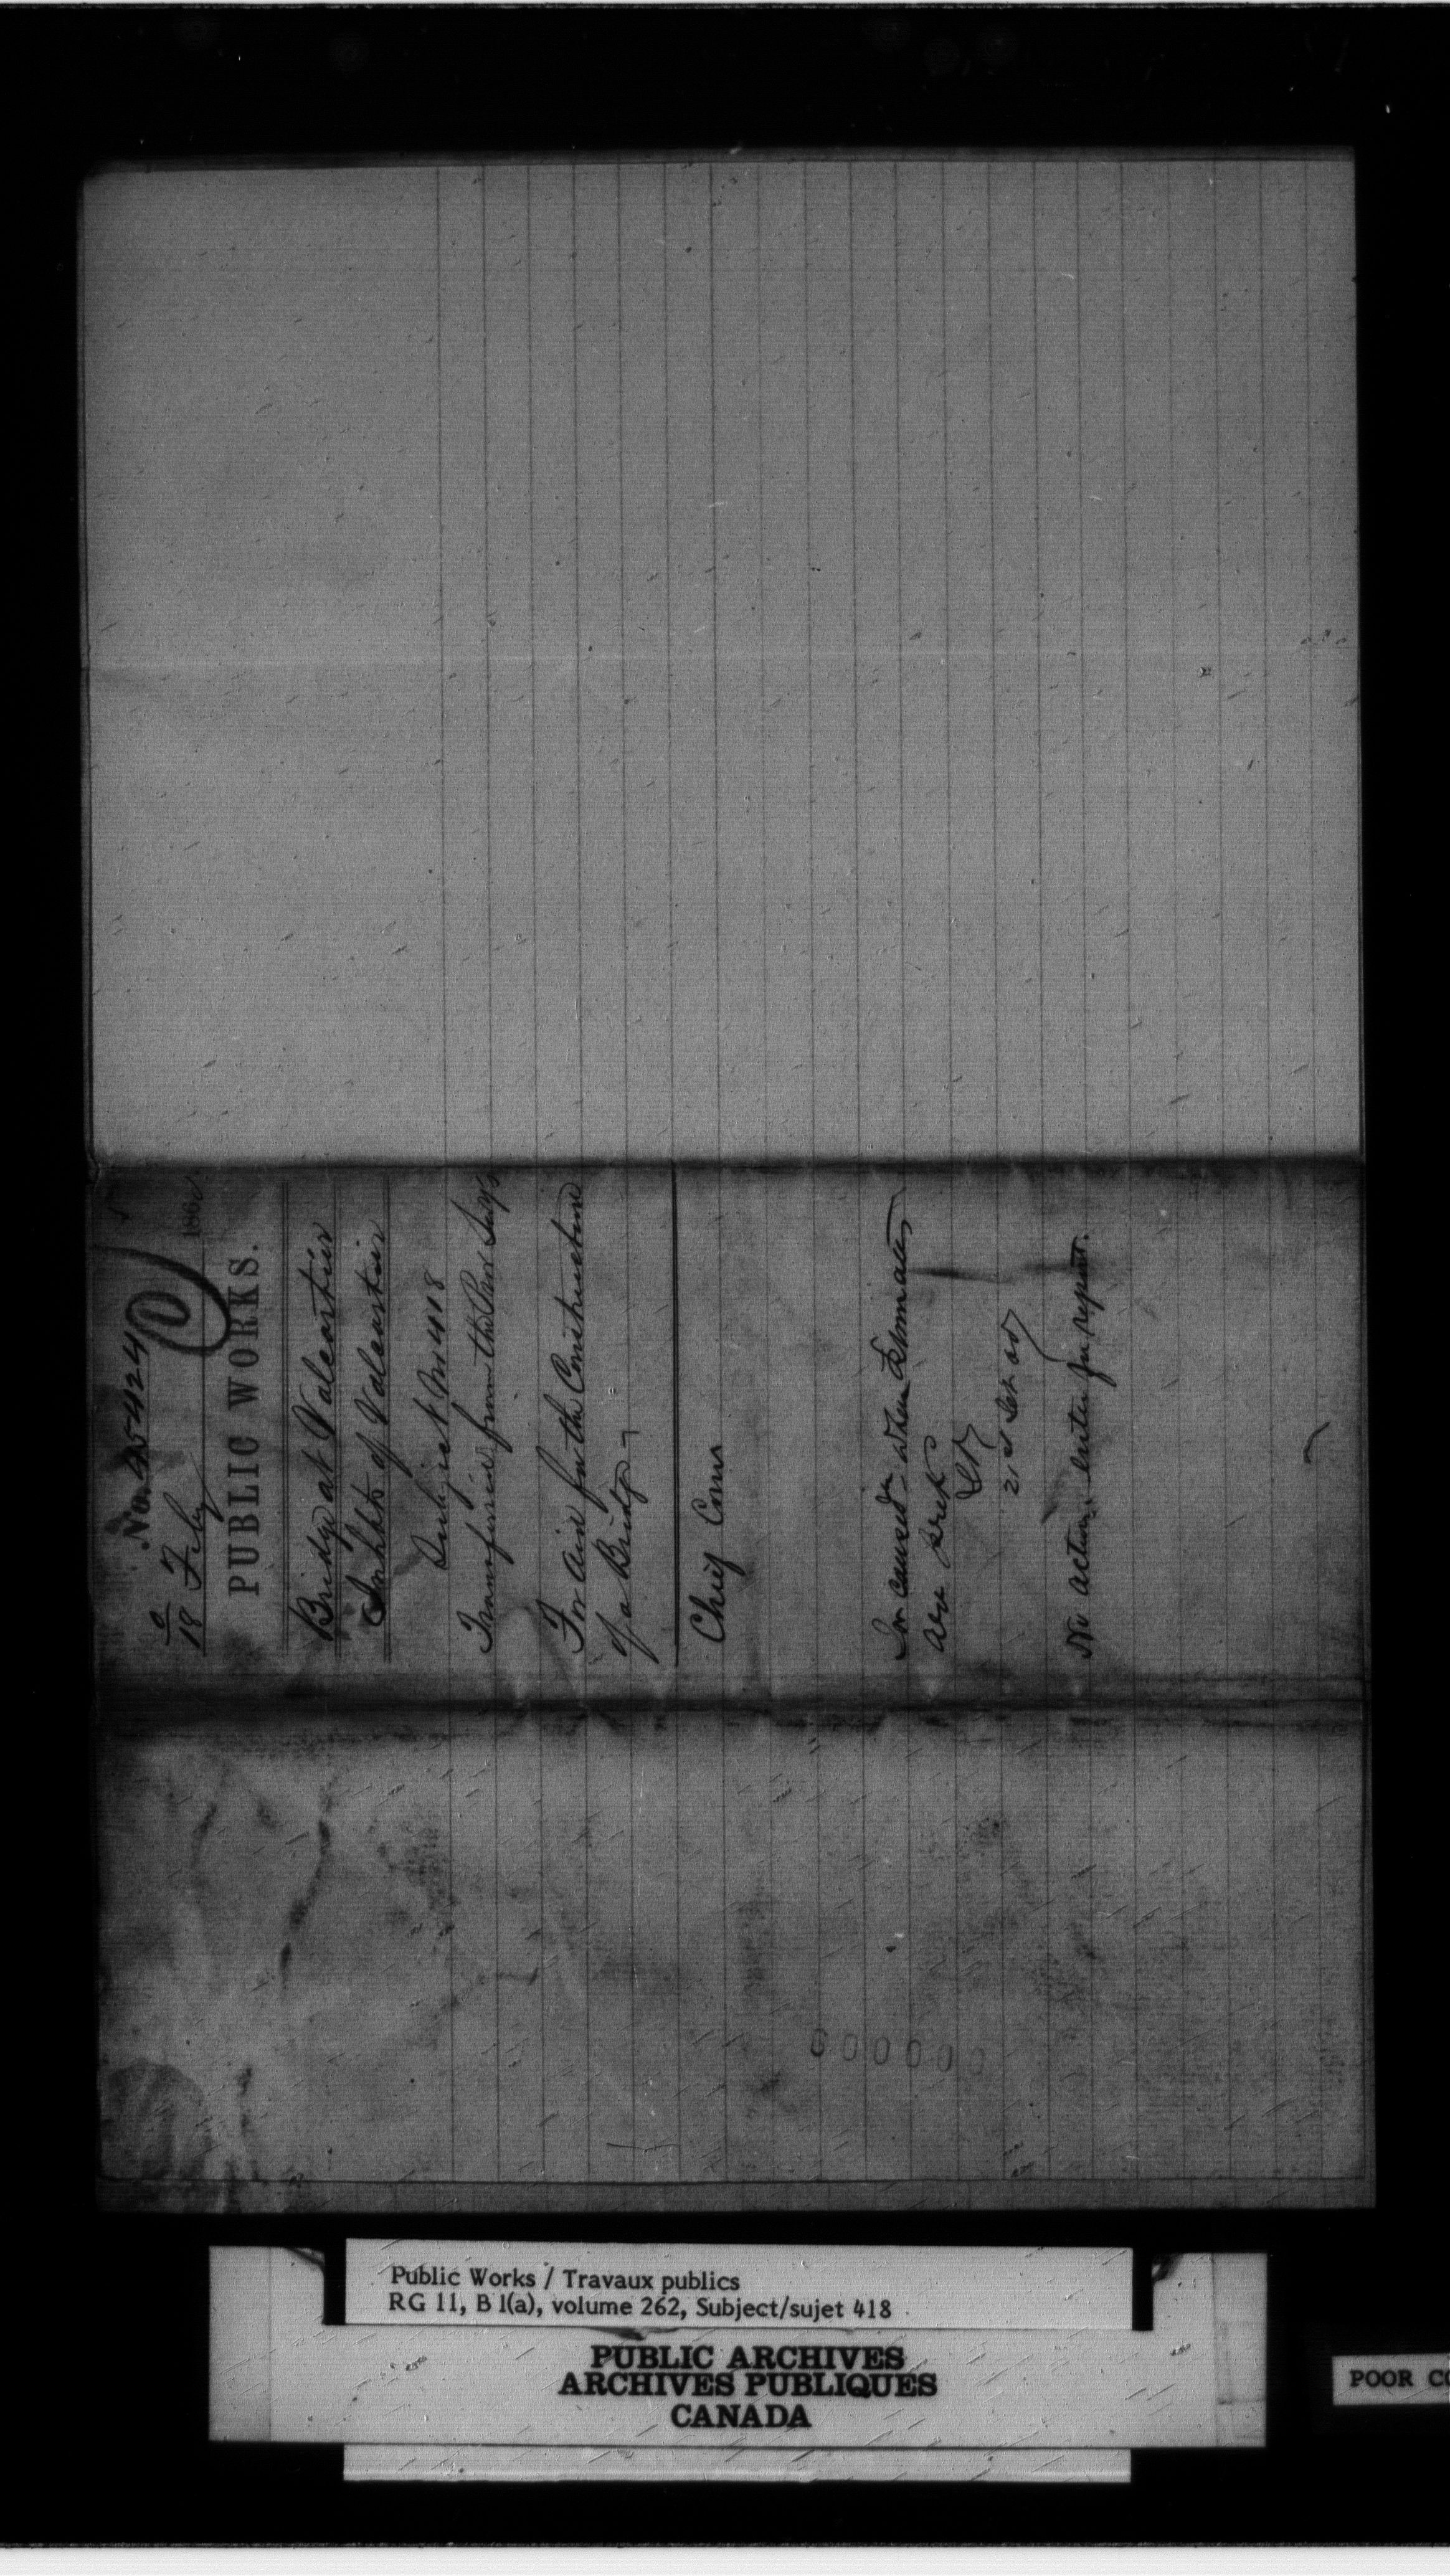 No. 45424
18 Feby 186
PUBLIC WORKS.
Bridge at Valcartier
Inhbts of Valcartier
Subject No 418
Transferred from the Prov Secy's
For Aid for the Construction
of a Bridge
Chief Com
when Estimates
are
21st
No action, enter for report.
000000
Public Works / Travaux publics
RG 11, B 1(a), volume 262, Subject/sujet 418
PUBLIC ARCHIVES
ARCHIVES PUBLIQUES
CANADA
POOR CO